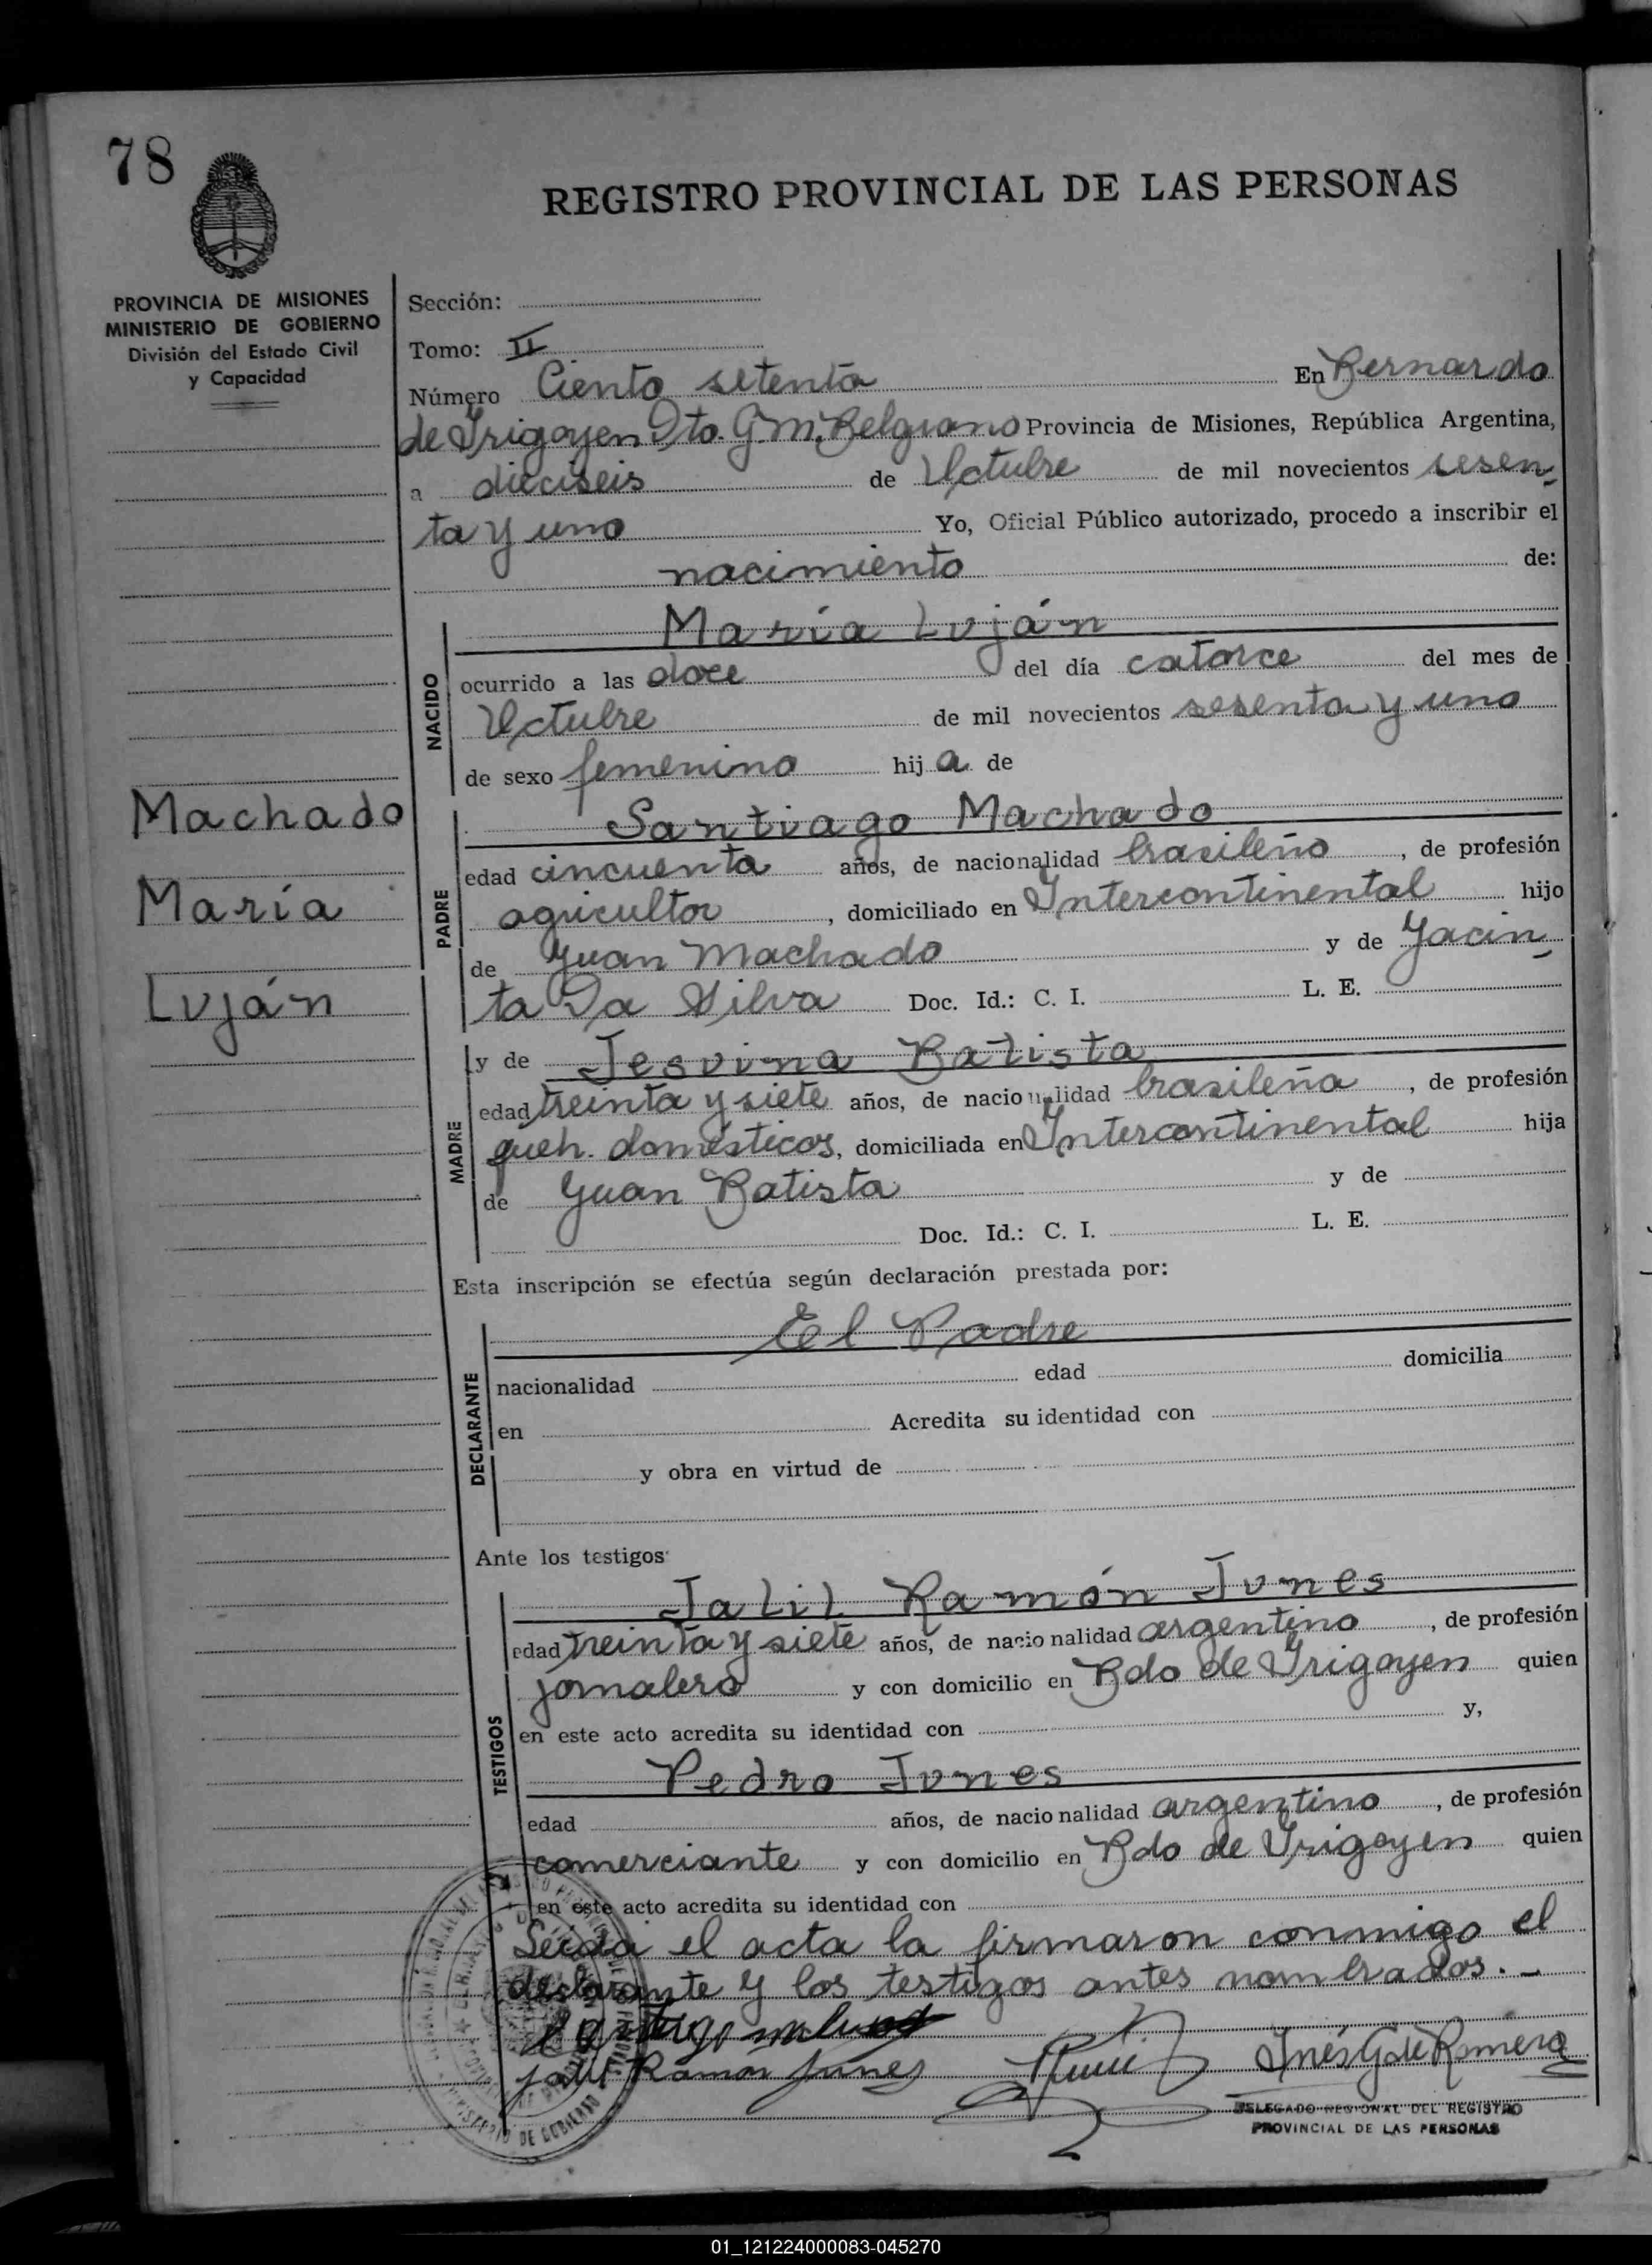 78
REGISTRO PROVINCIAL DE LAS PERSONAS
PROVINCIA DE MISIONES
MINISTERIO DE GOBIERNO
División del Estado Civil
y Capacidad
Sección:
Tomo: II
Número Ciento setenta En Bernardo
de Irigoyen Dto. G.M. Belgrano Provincia de Misiones, República Argentina,
a dieciseis de Octubre de mil novecientos sesen-
ta y uno Yo, Oficial Público autorizado, procedo a inscribir el
nacimiento de:
María Luján
NACIDO
ocurrido a las doce del día catorce del mes de
Octubre de mil novecientos sesenta y uno
de sexo femenino hij a de
Machado
María
Luján
PADRE
Santiago Machado
edad cincuenta años, de nacionalidad brasileño, de profesión
agricultor, domiciliado en Intercontinental hijo
de Juan Machado y de Jacin-
ta Da Silva Doc. Id.: C. I. L. E.
MADRE
y de Jesvina Batista
edad treinta y siete años, de nacionalidad brasileña, de profesión
queh. domésticos, domiciliada en Intercontinental hija
de Juan Batista y de
Doc. Id.: C. I. L. E.
Esta inscripción se efectúa según declaración prestada por:
DECLARANTE
El Padre
nacionalidad edad domicilia
en Acredita su identidad con
y obra en virtud de
Ante los testigos:
TESTIGOS
Jalil Ramón Junes
edad treinta y siete años, de nacionalidad argentino, de profesión
jornalero y con domicilio en Bdo de Irigoyen quien
en este acto acredita su identidad con y,
Pedro Junes
edad años, de nacionalidad argentino, de profesión
comerciante y con domicilio en Bdo de Irigoyen quien
en este acto acredita su identidad con
Leida el acta la firmaron conmigo el
declarante y los testigos antes nombrados.-
Jalil Ramon Junes Inés G de Romero
DELEGADO REGIONAL DEL REGISTRO
PROVINCIAL DE LAS PERSONAS
DE GOBIERNO
01_121224000083-045270